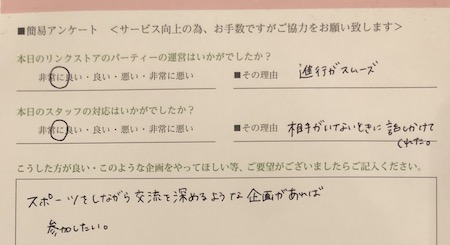 ■簡易アンケート　＜サービス向上の為、お手数ですがご協力をお願い致します＞
本日のリンクストアのパーティーの運営はいかがでしたか？
非常に良い・良い・悪い・非常に悪い　■その理由　進行がスムーズ
本日のスタッフの対応はいかがでしたか？
非常に良い・良い・悪い・非常に悪い　■その理由　相手がいないときに話しかけて
くれた。
こうした方が良い・このような企画をやってほしい等、ご要望がございましたらご記入ください。
スポーツをしながら交流を深めるような企画があれば
参加したい。